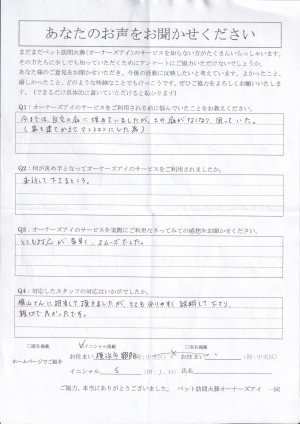 あなたのお声をお聞かせください
まだまだペット訪問火葬(オーナーズアイ)のサービスを知らない方がたくさんいらっしゃいます。
その方たちに少しでも知っていただくためにアンケートにご協力いただけないでしょうか。
あなた様のご意見をお聞かせいただき、今後の活動に反映したいと考えています。よかったこと、
嬉しかったこと、どのような些細なことでもけっこうです。ぜひご協力をよろしくお願いいたしま
す。(できるだけ具体的に書いていただけると助かります)
Q1：オーナーズアイのサービスをご利用される前に悩んでいたことをお教えください。
今までは、自宅の庭に埋めていましたが、土の庭がなくなり、困っていた。
(家を建てかえてマンションにした為)
Q2：何が決め手となってオーナーズアイのサービスをご利用されましたか。
来訪して下さるところ。
Q3：オーナーズアイのサービスを実際にご利用なさってみての感想をお聞かせください。
とても対応が素早く、スムーズでした。
Q4：対応したスタッフの対応はいかがでしたか。
さんに担当して頂きましたが、とても分りやすく説明して下さり、
親切で良かったです。
□匿名掲載
イニシャル掲載
□実名掲載
ホームページでご紹介
お住まい 横浜市
お住まい
(例：中央区)
イニシャル S (例：J.H)
氏名
ご協力、本当にありがとうございました。 ペット訪問火葬オーナーズアイ 一同